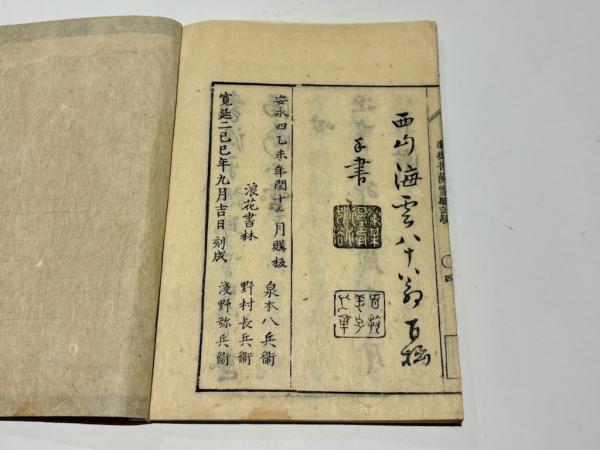 西山海雲八十八翁百拙
手書
安永四乙未年閏十二月購板
寛延二己巳年九月吉日 刻成
浪花書林
泉本八兵衞
野村長兵衞
淺野弥兵衞